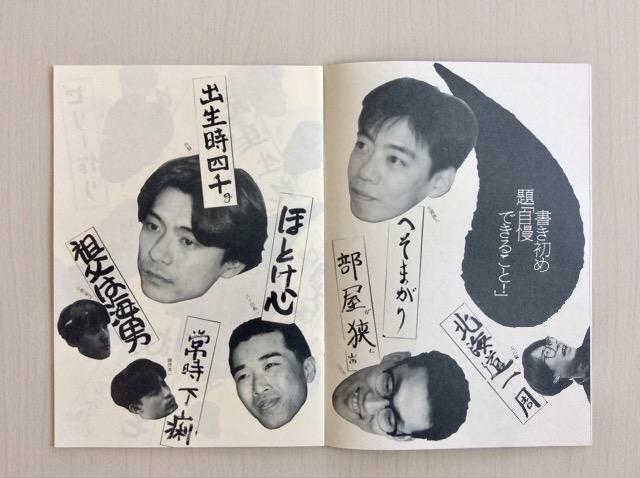 書き初め
題「自慢
できること！」
へそまがり
部屋狭
北海道一周
出生時四千g
ほとけ心
祖父は海男
常時下痢